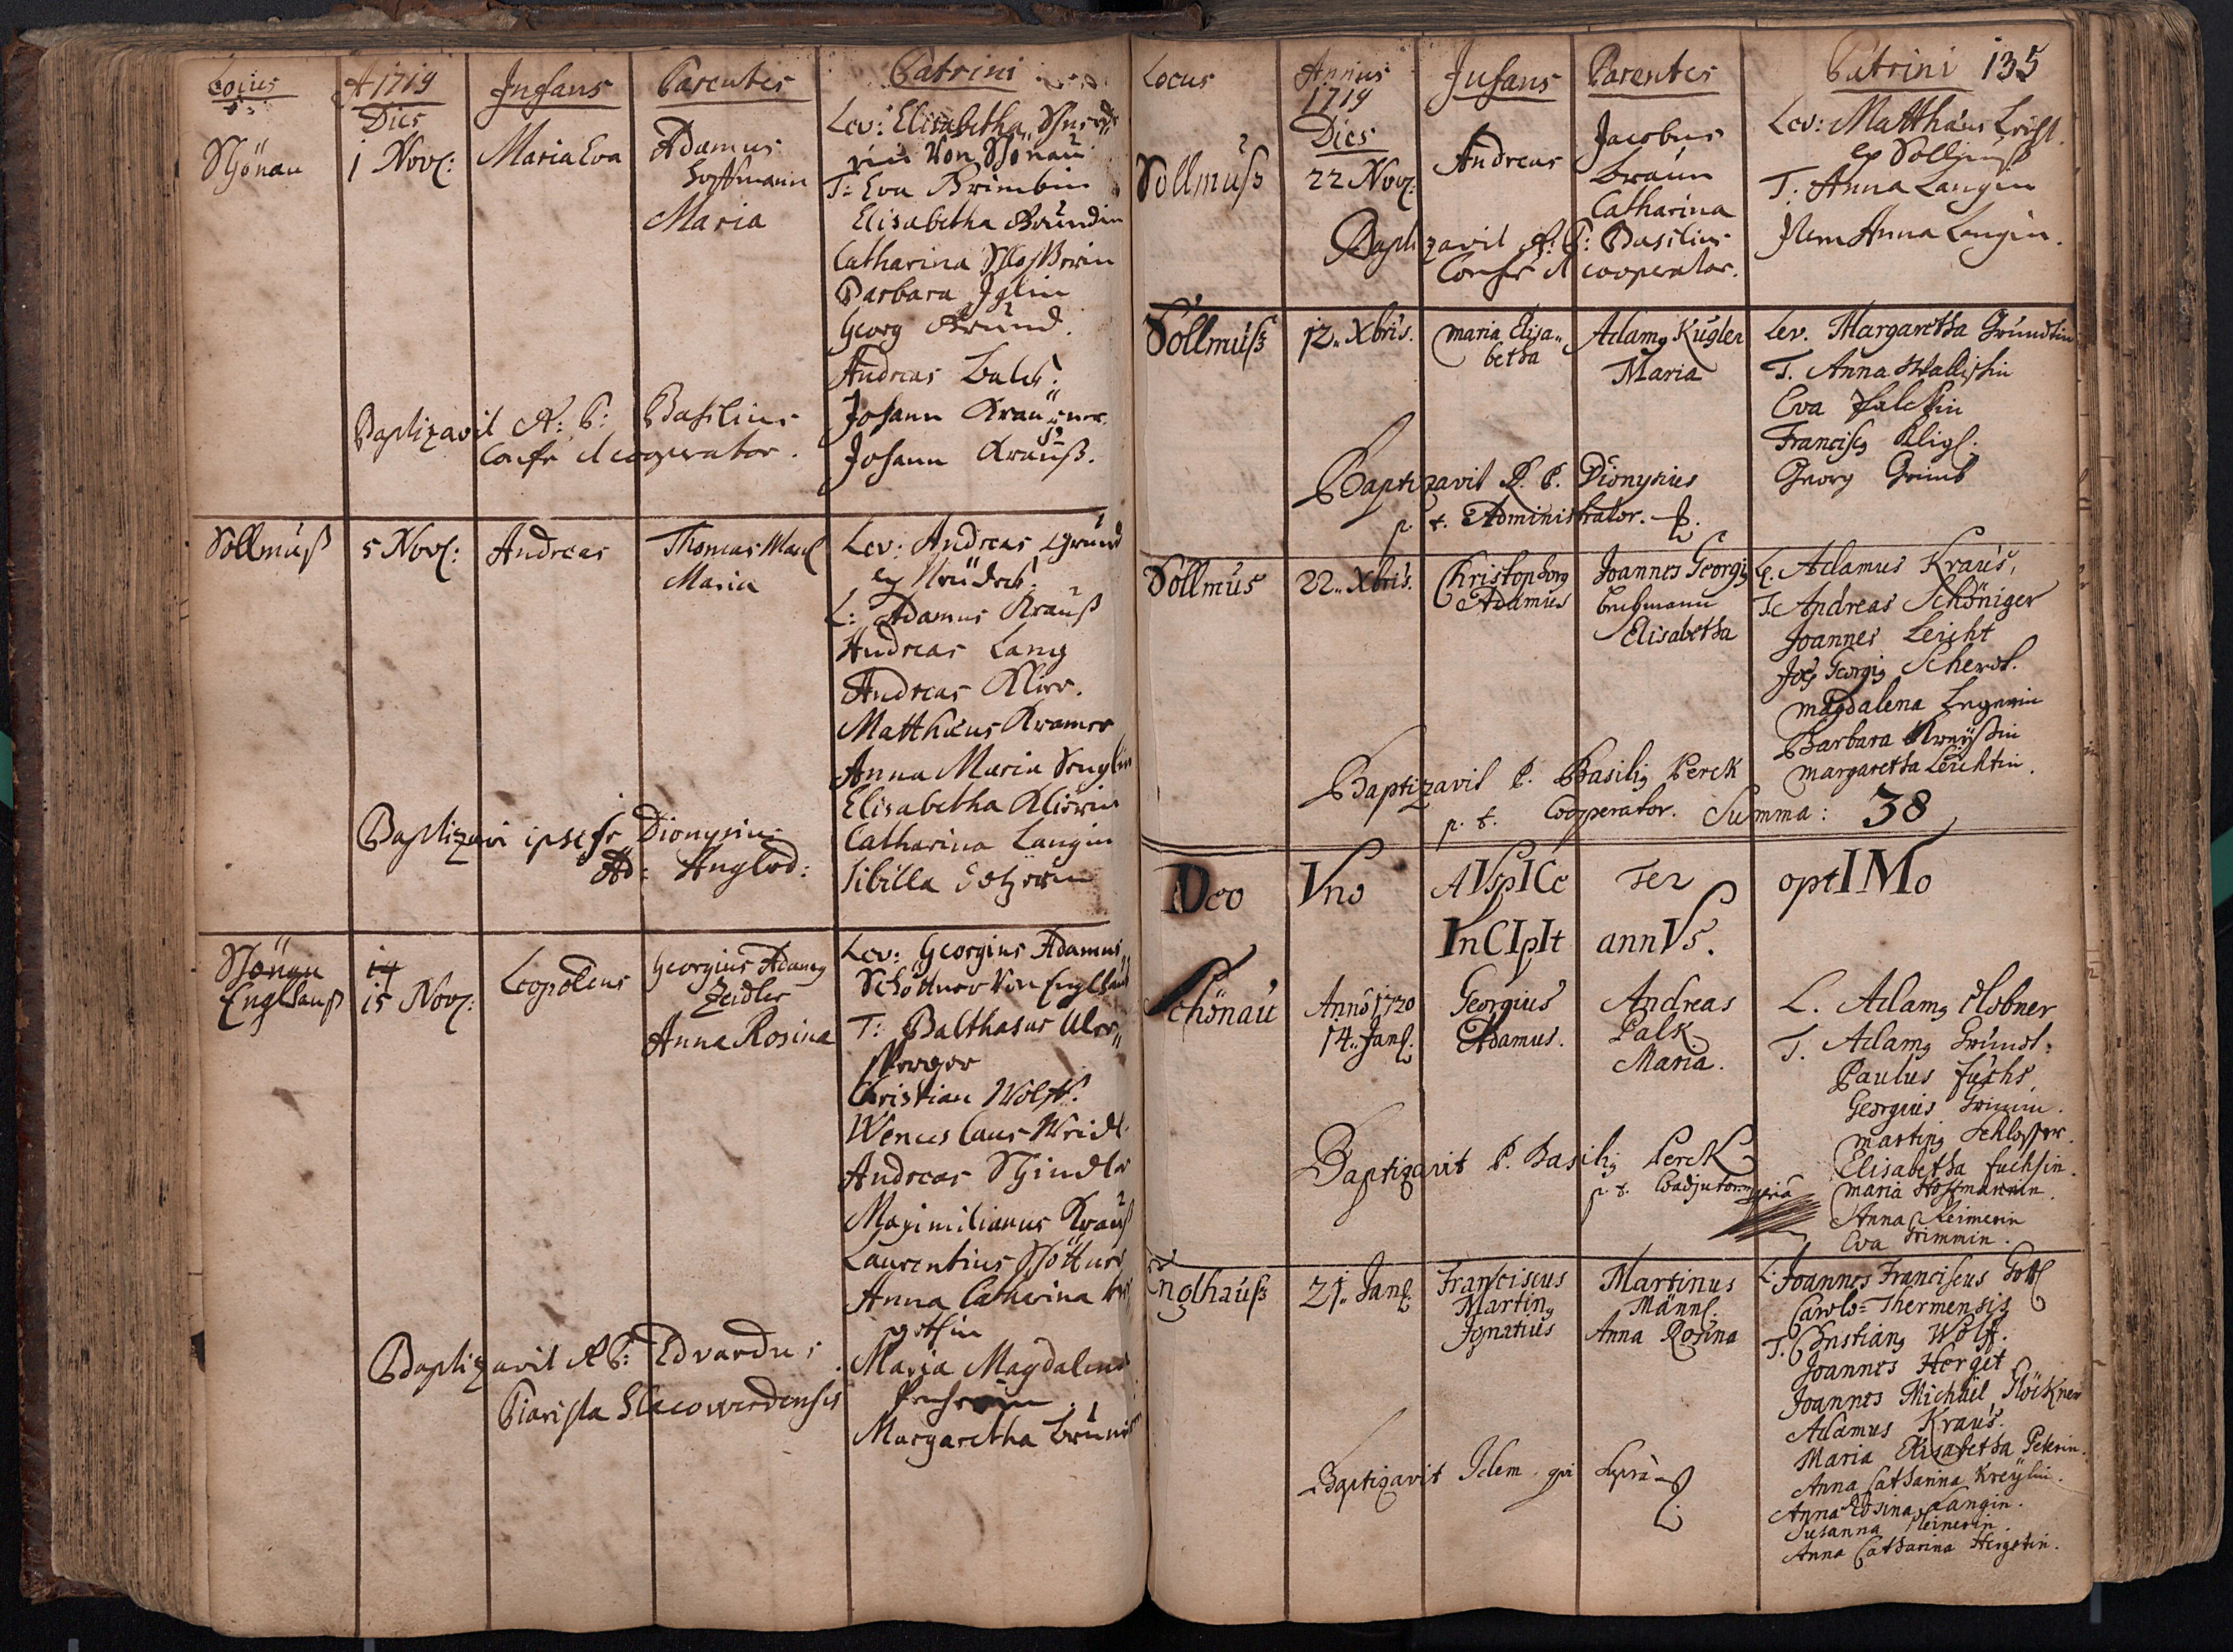 Locus A 1719 Infans Parentes Patrini
Dies
Schönau 1 Nov: Maria Eva Adamus
Hoffmann
Maria
Lev: Elisabetha
rin Von Schönau
T: Eva Brimbin
Elisabetha Grundin
Catharina Schlosserin
Barbara Iglin
Georg Grund.
Andreas Balck:
Johann
Johann Krauß.
Baptizavit R: P: Basilius
Confr et cooperator.
Sollmuß 5 Nov: Andreas Thomas
Maria
Lev: Andreas Grund
ex
L: Adamus Krauß
Andreas Lang
Andreas Klier.
Matthäus Kramer
Anna Maria
Elisabetha Klierin
Catharina Langin
Sibilla
Baptizavi ipse fr Dionysius
Ad:
Schönau
Englhauß
14
15 Nov: Leopoldus Georgius Adamus
Zeidler
Anna Rosina
Lev: Georgius Adamus
Schöttner Von Englhauß
T: Balthasar Uler„
sperger
Christian Wolff.
Wenceslaus Weidl
Andreas Schindler
Maximilianus Krauß
Laurentius Schöttner
Anna Catharina
gethin
Maria Magdalena
Margaretha
Baptizavit R P: Edvardus
Piarista Slacowerdensis
Locus Annus Infans Parentes Patrini 135
1719
Dies
Sollmuß 22 Nov: Andreas Jacobus
Braun
Catharina
Lev: Matthäus
ex Sollmuß
T: Anna Langin
Item Anna Langin.
Baptizavit R: P: Basilius
Confr et cooperator.
Sollmuß 12„ Xbris. Maria Elisa„
betha
Adamg Kugler
Maria
Lev. Margaretha Grundlin
T. Anna Wallischin
Eva Falckin
Francisg
Georg Grimb
Baptizavit R. P. Dionysius
p. t. Administrator.
Sollmus 22„ Xbris. Christophorg
Adamus
Joannes Georgig
Bachmann
Elisabetha
L. Adamus Kraus,
T. Andreas Schöniger
Joannes Leicht
Joes Georgig Scherdl.
Magdalena
Barbara
Margaretha Leichtin.
Baptizavit P. Basilig Perck
p. t. Cooperator. Summa: 38
Deo Vno AVspICe Ter optIMo
InCIpIt annVs.
Schönau Anno 1720
14„ Jan
Georgius
Adamus.
Andreas
Palk
Maria.
L. Adamg Elobner
T. Adamg Grundl:
Paulus Fuchs,
Georgius Grimm.
Marting Schlosser.
Elisabetha Fuchsin.
Maria Hoffmannin.
Anna Reimerin
Eva Grimmin.
Baptizavit P. Basilig Perck
p. t. Coadjutor
Englhauß 21„ Jan Franciscus
Marting
Ignatius
Martinus
Männl
Anna Rosina
L. Joannes Franciscus Gottl
Carolo=Thermensis
T. Christiang Wolff.
Joannes Herget
Joannes Michäel Klöckner
Adamus Kraus.
Maria Elisabetha Peterin.
Anna Catharina Kreÿlin.
Anna Rosina Langin.
Susanna Kleinerin.
Anna Catharina Hergetin.
Baptizavit Idem qui supra